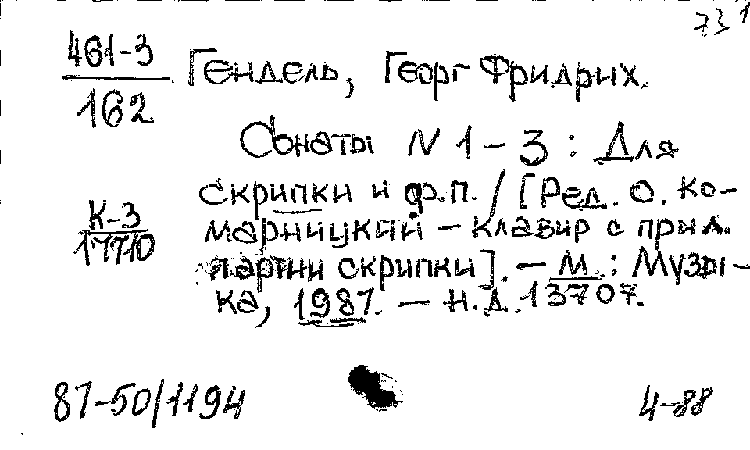 73 1
461-3
162
Гендель, Георг Фридрих.
Сонаты N 1-3 : Для
скрипки и ф.п. / [Ред. О. Ко-
К-3
17710
марницкий - клавир с прил.
партии скрипки]. - М. : Музы-
ка, 1987. - Н.Д. 13707.
87-50/1194
4-88